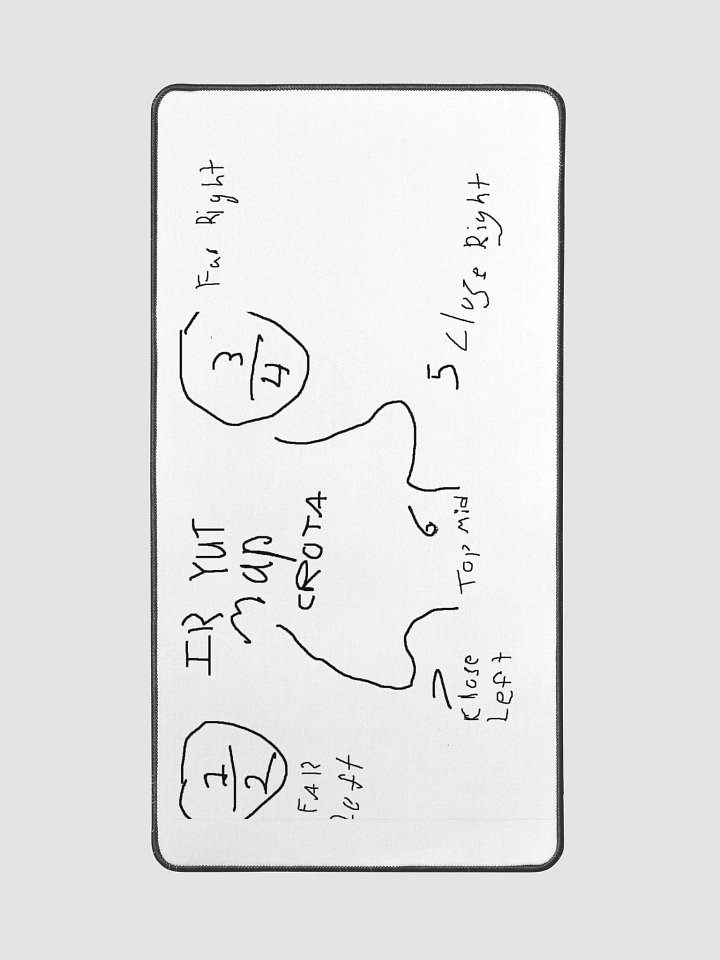 IR YUT
map
CROTA
1/2
FAR
Left
3/4
Far Right
5 Close Right
6
Top Mid
7
Klose
Left